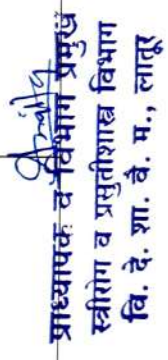 प्राध्यापक व विभाग प्रमुख
स्त्रीरोग व प्रसुतीशास्त्र विभाग
वि. दे. शा. वै. म., लातूर